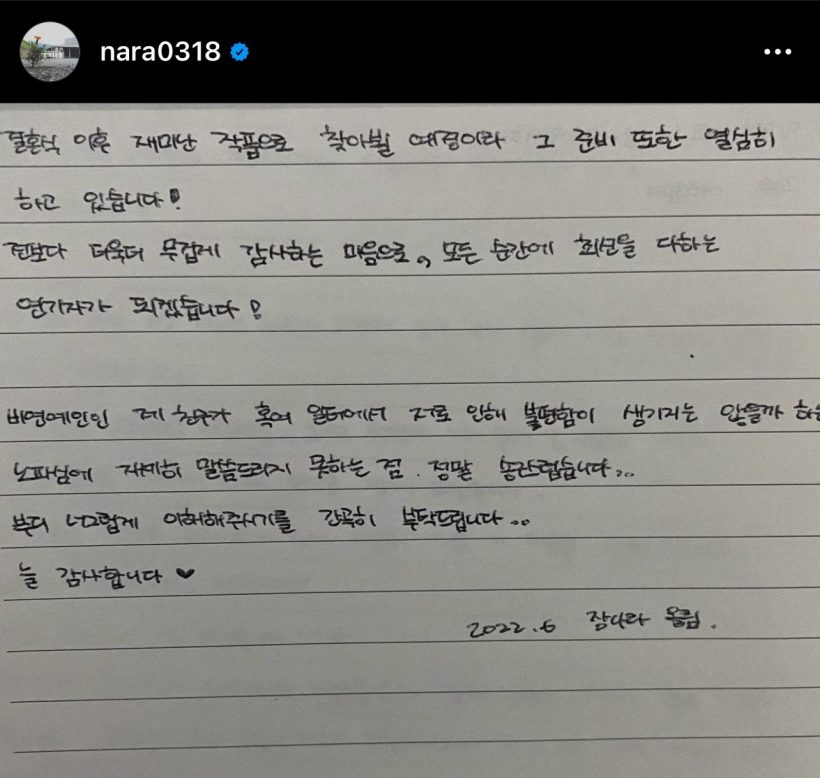 nara0318
결혼식 이후 재미난 작품으로 찾아뵐 예정이라 그 준비 또한 열심히
하고 있습니다!
전보다 더욱더 무겁게 감사하는 마음으로, 모든 순간에 최선을 다하는
연기자가 되겠습니다!
비연예인인 제 친구가 혹여 일터에서 저로 인해 불편함이 생기지는 않을까 하는
노파심에 자세히 말씀드리지 못하는 점. 정말 송구스럽습니다..
부디 너그럽게 이해해주시기를 간곡히 부탁드립니다..
늘 감사합니다 ♥
2022.6 장나라 올림.